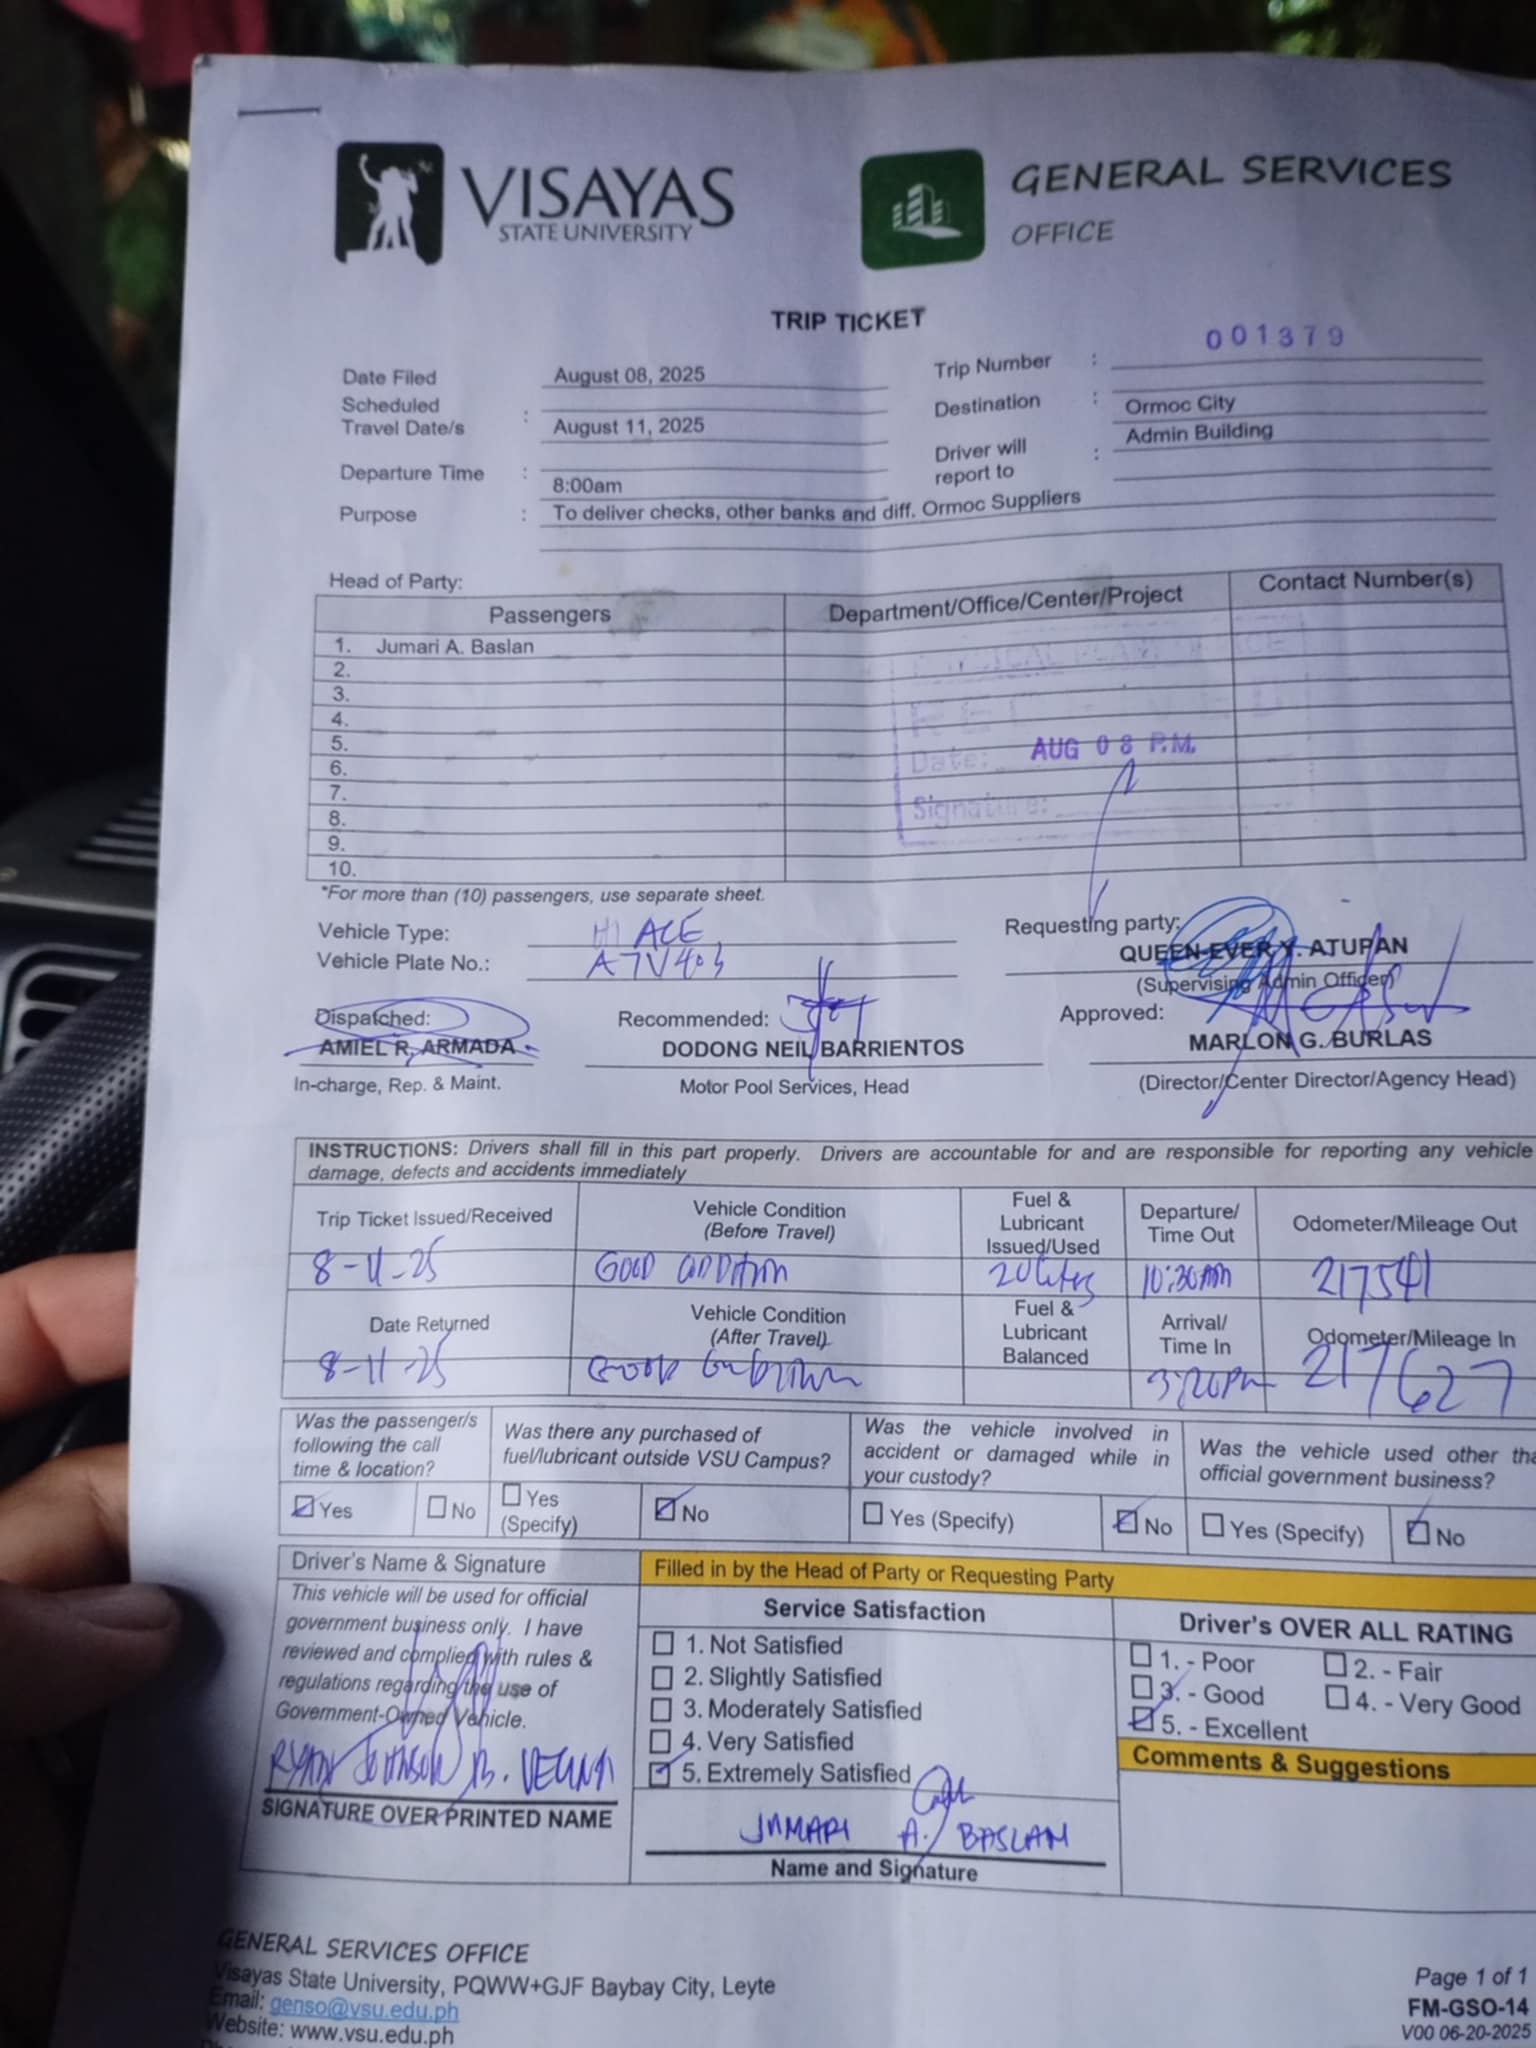 VISAYAS
STATE UNIVERSITY
GENERAL SERVICES
OFFICE
TRIP TICKET
Date Filed August 08, 2025
Trip Number : 001379
Scheduled
Travel Date/s : August 11, 2025
Destination : Ormoc City
Departure Time : 8:00am
Driver will
report to : Admin Building
Purpose : To deliver checks, other banks and diff. Ormoc Suppliers
Head of Party:
Passengers Department/Office/Center/Project Contact Number(s)
1. Jumari A. Baslan
2.
3.
4.
5.
6.
7.
8.
9.
10.
PHYSICAL PLANT OFFICE
RECEIVED
Date: AUG 08 P.M.
Signature:
*For more than (10) passengers, use separate sheet.
Vehicle Type: HI ACE
Vehicle Plate No.: A7V403
Requesting party:
QUEEN-EVER Y. ATUPAN
(Supervising Admin Officer)
Dispatched:
AMIEL R. ARMADA
In-charge, Rep. & Maint.
Recommended:
DODONG NEIL BARRIENTOS
Motor Pool Services, Head
Approved:
MARLON G. BURLAS
(Director/Center Director/Agency Head)
INSTRUCTIONS: Drivers shall fill in this part properly. Drivers are accountable for and are responsible for reporting any vehicle
damage, defects and accidents immediately
Trip Ticket Issued/Received
Vehicle Condition
(Before Travel)
Fuel &
Lubricant
Issued/Used
Departure/
Time Out
Odometer/Mileage Out
8-11-25 GOOD CONDITION 20 liters 10:30AM 217541
Date Returned
Vehicle Condition
(After Travel)
Fuel &
Lubricant
Balanced
Arrival/
Time In
Odometer/Mileage In
8-11-25 GOOD CONDITION 3:20PM 217627
Was the passenger/s
following the call
time & location?
Was there any purchased of
fuel/lubricant outside VSU Campus?
Was the vehicle involved in
accident or damaged while in
your custody?
Was the vehicle used other tha
official government business?
Yes
No
Yes
(Specify)
No
Yes (Specify)
No
Yes (Specify)
No
Driver's Name & Signature
This vehicle will be used for official
government business only. I have
reviewed and complied with rules &
regulations regarding the use of
Government-Owned Vehicle.
RYAN JOHNSON B.
SIGNATURE OVER PRINTED NAME
Filled in by the Head of Party or Requesting Party
Service Satisfaction
1. Not Satisfied
2. Slightly Satisfied
3. Moderately Satisfied
4. Very Satisfied
5. Extremely Satisfied
JUMARI A. BASLAN
Name and Signature
Driver's OVER ALL RATING
1. - Poor 2. - Fair
3. - Good 4. - Very Good
5. - Excellent
Comments & Suggestions
GENERAL SERVICES OFFICE
Visayas State University, PQWW+GJF Baybay City, Leyte
Email: genso@vsu.edu.ph
Website: www.vsu.edu.ph
Page 1 of 1
FM-GSO-14
V00 06-20-2025